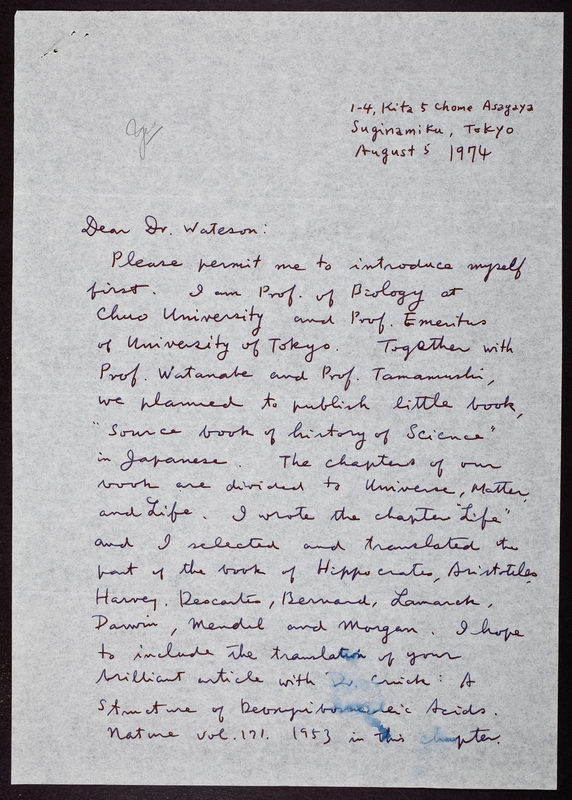 Yes
1-4, Kita 5 Chome Asagaya
Suginamiku, Tokyo
August 5 1974
Dear Dr. Wateson:
Please permit me to introduce myself
first. I am Prof. of Biology at
Chuo University and Prof. Emeritus
of University of Tokyo. Together with
Prof. Watanabe and Prof. Tamamushi,
we planned to publish little book,
"Source book of history of Science"
in Japanese. The chapters of our
book are divided to Universe, Matter,
and Life. I wrote the chapter "Life"
and I selected and translated the
part of the book of Hippocrates, Aristotiles,
Harvey, Descartes, Bernard, Lamarck,
Darwin, Mendel and Morgan. I hope
to include the translation of your
brilliant article with Dr. Crick: A
Structure of Deoxyribonucleic Acids.
Nature vol. 171. 1953 in this chapter.